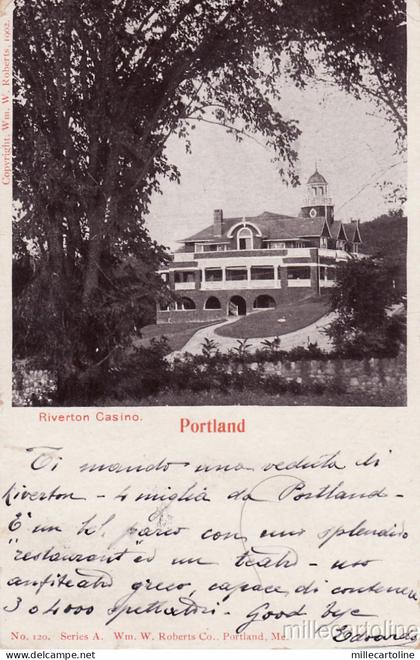 Copyright, Wm. W. Roberts, 1902.
Riverton Casino.
Portland
Ti mando una veduta di
Riverton - 4 miglia da Portland -
È un bel parco con uno splendido
"restaurant" ed un teatro - uso
anfiteatro greco, capace di contenere
3 o 4000 spettatori - Good bye
Edoardo
No. 120. Series A. Wm. W. Roberts Co., Portland, Me.
millecartoline
© millecartoline millecartoline.com